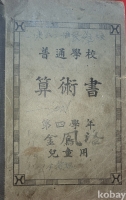 普通學校
算術書
第四學年
兒童用
kobay